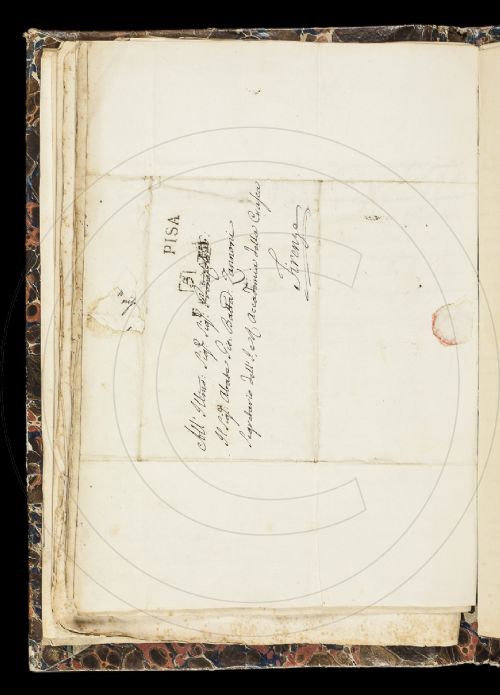 PISA
All' Illmo: Sigr: Sigr:
Il Sigr: Abate Gio: Batta: Zannoni
Segretario dell' I. e R. Accademia della Crusca
Firenze